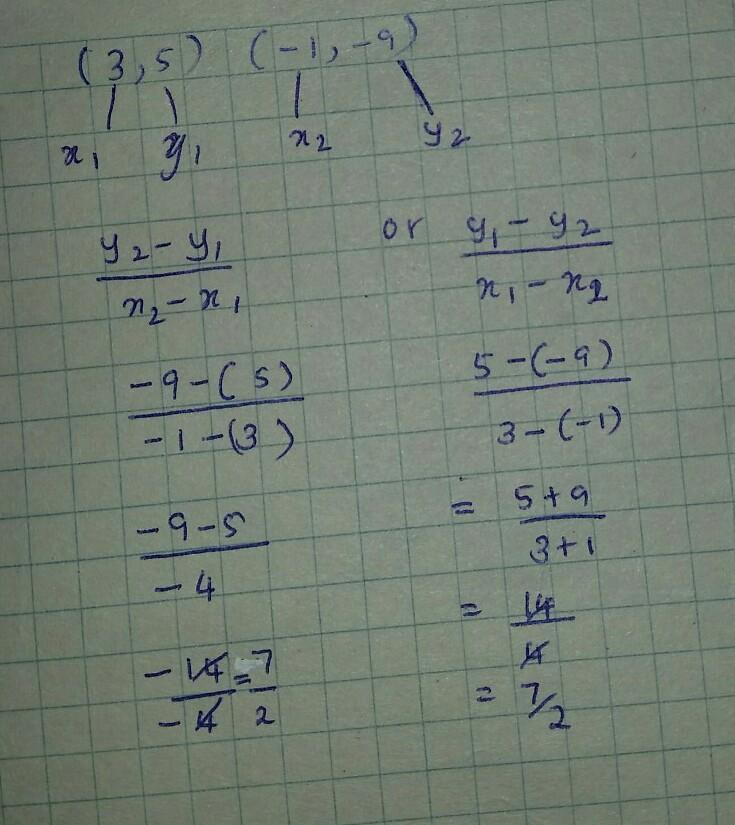 (3,5) (-1,-9)
x₁ y₁ x₂ y₂
y₂-y₁/x₂-x₁ or y₁-y₂/x₁-x₂
-9-(5)/-1-(3) 5-(-9)/3-(-1)
-9-5/-4 = 5+9/3+1
-14/-4 = 7/2 = 14/4
= 7/2